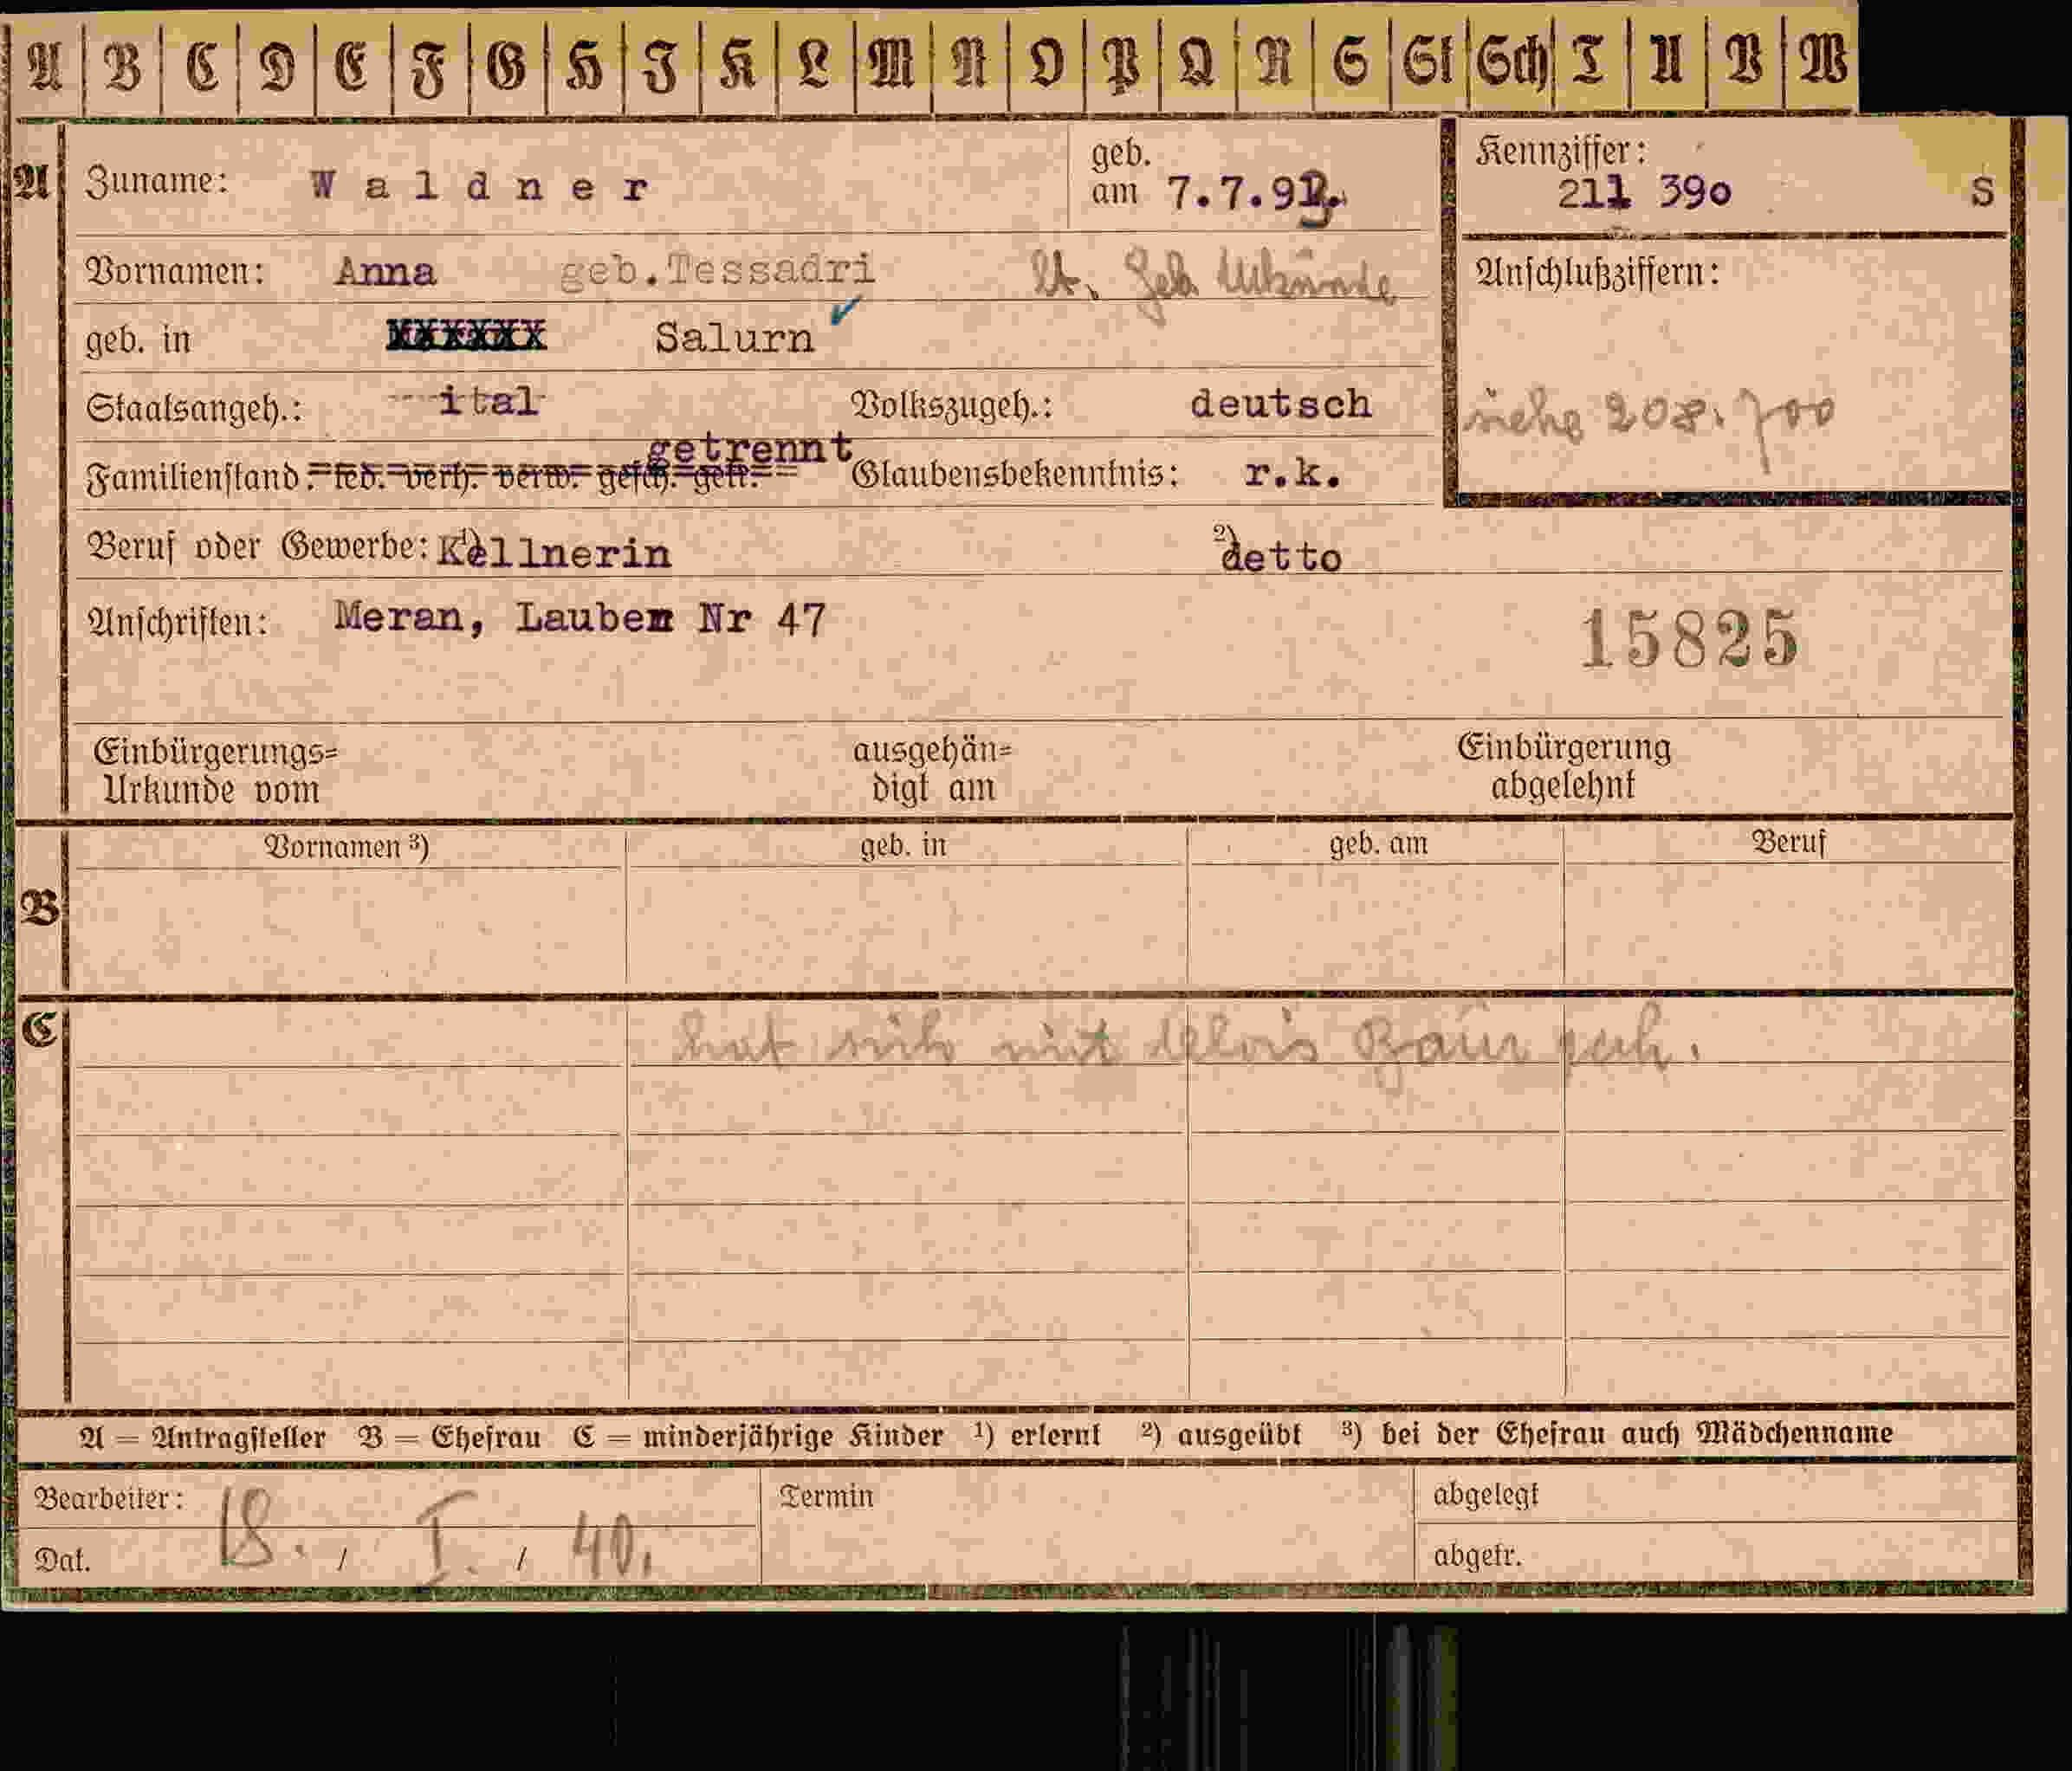 A B C D E F G H J K L M N O P Q R S St Sch T U V W
A Zuname: Waldner geb. am 7.7.93. Kennziffer: 211 390 S
Vornamen: Anna geb.Tessadri lt. Geb. Urkunde Anschlußziffern:
geb. in Salurn
siehe 208.700
Staatsangeh.: ital Volkszugeh.: deutsch
getrennt
Familienstand: led. verh. verw. gesch. getr. Glaubensbekenntnis: r.k.
Beruf oder Gewerbe: 1) Kellnerin 2) detto
Anschriften: Meran, Lauben Nr 47
15825
Einbürgerungs= ausgehän= Einbürgerung
Urkunde vom digt am abgelehnt
Vornamen ³) geb. in geb. am Beruf
B
C hat sich mit Alois
A = Antragsteller B = Ehefrau C = minderjährige Kinder ¹) erlernt ²) ausgeübt ³) bei der Ehefrau auch Mädchenname
Bearbeiter: Termin abgelegt
Dat. 18. / I. / 40. abgetr.